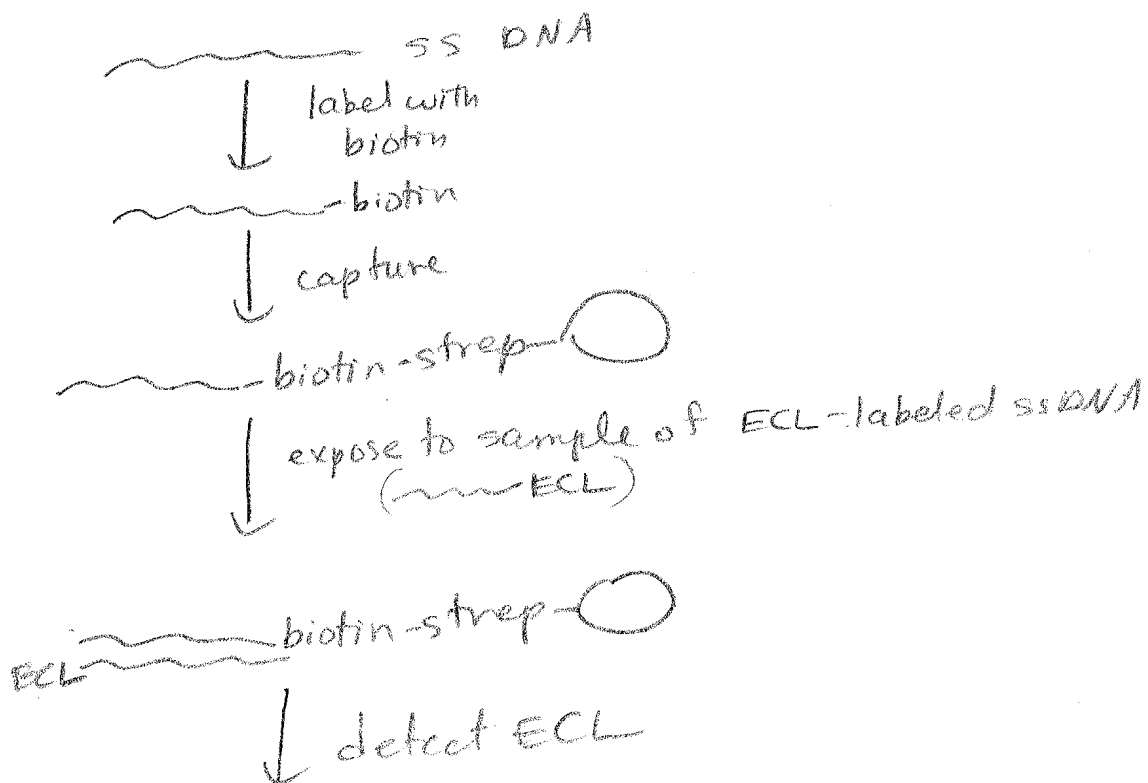 ss DNA
label with
biotin
-biotin
capture
-biotin-strep-
expose to sample of ECL-labeled ssDNA
(ECL)
biotin-strep-
ECL
detect ECL